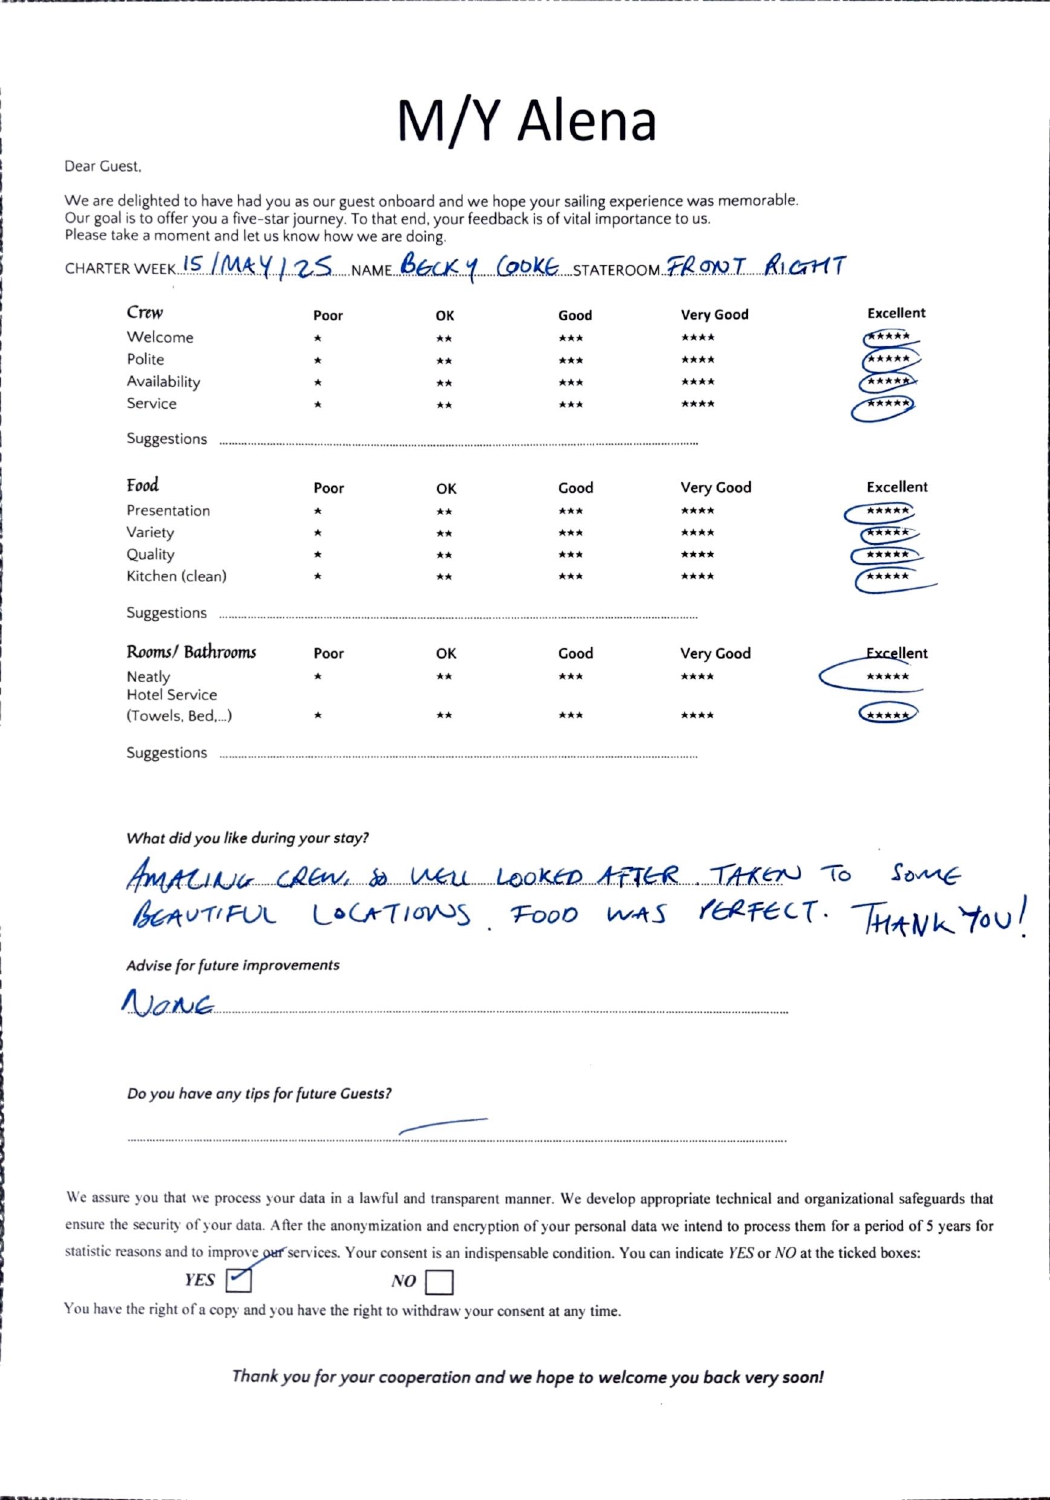 M/Y Alena
Dear Guest,
We are delighted to have had you as our guest onboard and we hope your sailing experience was memorable.
Our goal is to offer you a five-star journey. To that end, your feedback is of vital importance to us.
Please take a moment and let us know how we are doing.
CHARTER WEEK 15/MAY/25 NAME BECKY COOKE STATEROOM FRONT RIGHT
Crew Poor OK Good Very Good Excellent
Welcome ★ ★★ ★★★ ★★★★ ★★★★★
Polite ★ ★★ ★★★ ★★★★ ★★★★★
Availability ★ ★★ ★★★ ★★★★ ★★★★★
Service ★ ★★ ★★★ ★★★★ ★★★★★
Suggestions
Food Poor OK Good Very Good Excellent
Presentation ★ ★★ ★★★ ★★★★ ★★★★★
Variety ★ ★★ ★★★ ★★★★ ★★★★★
Quality ★ ★★ ★★★ ★★★★ ★★★★★
Kitchen (clean) ★ ★★ ★★★ ★★★★ ★★★★★
Suggestions
Rooms/ Bathrooms Poor OK Good Very Good Excellent
Neatly ★ ★★ ★★★ ★★★★ ★★★★★
Hotel Service
(Towels, Bed,...) ★ ★★ ★★★ ★★★★ ★★★★★
Suggestions
What did you like during your stay?
AMAZING CREW, SO WELL LOOKED AFTER. TAKEN TO SOME
BEAUTIFUL LOCATIONS. FOOD WAS PERFECT. THANK YOU!
Advise for future improvements
NONE
Do you have any tips for future Guests?
We assure you that we process your data in a lawful and transparent manner. We develop appropriate technical and organizational safeguards that
ensure the security of your data. After the anonymization and encryption of your personal data we intend to process them for a period of 5 years for
statistic reasons and to improve our services. Your consent is an indispensable condition. You can indicate YES or NO at the ticked boxes:
YES NO
You have the right of a copy and you have the right to withdraw your consent at any time.
Thank you for your cooperation and we hope to welcome you back very soon!